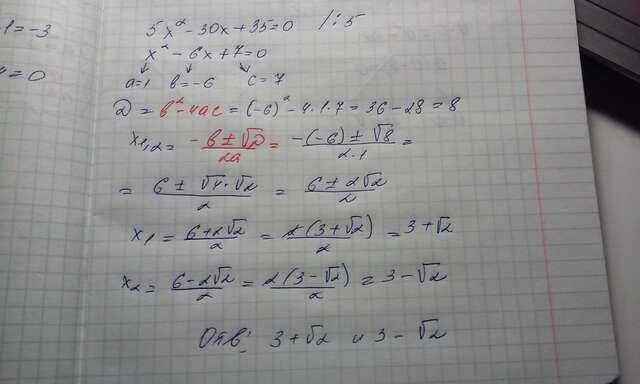 1=-3
=0
5x²-30x+35=0 /:5
x²-6x+7=0
a=1 в=-6 c=7
D = в²-4ac = (-6)²-4·1·7 = 36-28 = 8
x1,2 = -в±√D/2a = -(-6)±√8/2·1 =
= 6±√4·√2/2 = 6±2√2/2
x1 = 6+2√2/2 = 2(3+√2)/2 = 3+√2
x2 = 6-2√2/2 = 2(3-√2)/2 = 3-√2
Отв: 3+√2 и 3-√2